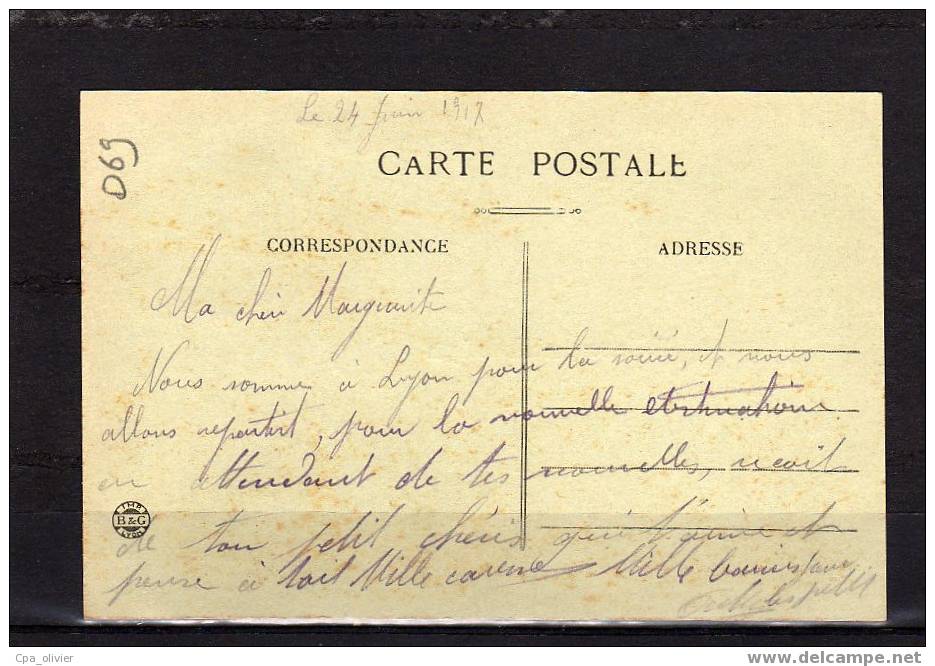 Le 24 Juin 1917
D69
CARTE POSTALE
CORRESPONDANCE
ADRESSE
Ma chéri Marguerite
Nous somme à Lyon pour la soiré, et nous
allons repartirt, pour la nouvelle
en attendant de tes nouvelles, recoit
IMP
B&G
LYON
de ton petit chéris qui t'aime et
pense à toit Mille caresse Mille
Cpa_olivier
www.delcampe.net